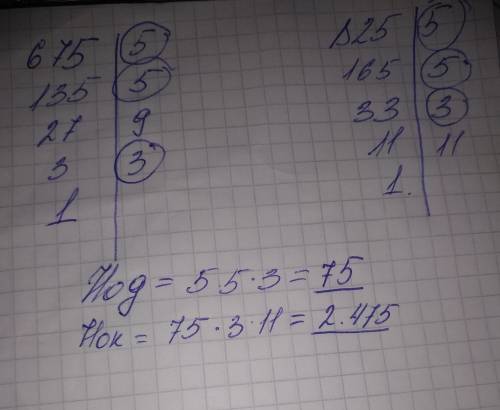 675 | 5
135 | 5
27 | 9
3 | 3
1
825 | 5
165 | 5
33 | 3
11 | 11
1.
Нод = 5 5 · 3 = 75
Нок = 75 · 3 · 11 = 2.475